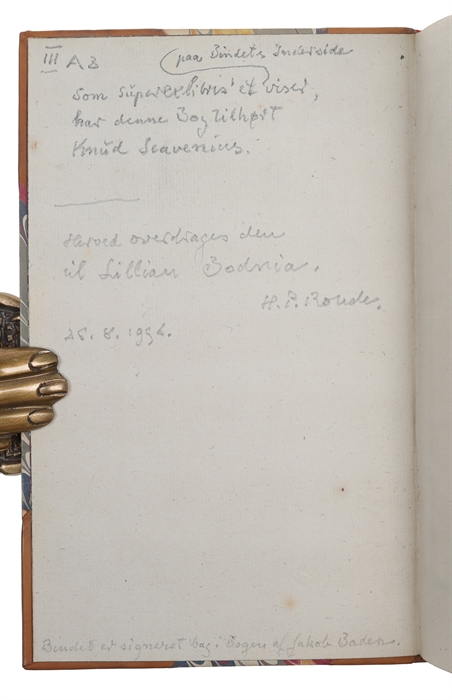 III AB
paa Bindets Inderside
Som Superexlibris'et viser,
har denne Bog tilhørt
Knud Scavenius.
Herved overdrages den
til Lillian Bodnia.
H. P. Rohde.
25. 8. 1992.
Bindet er signeret bag i bogen af Jakob Baden.